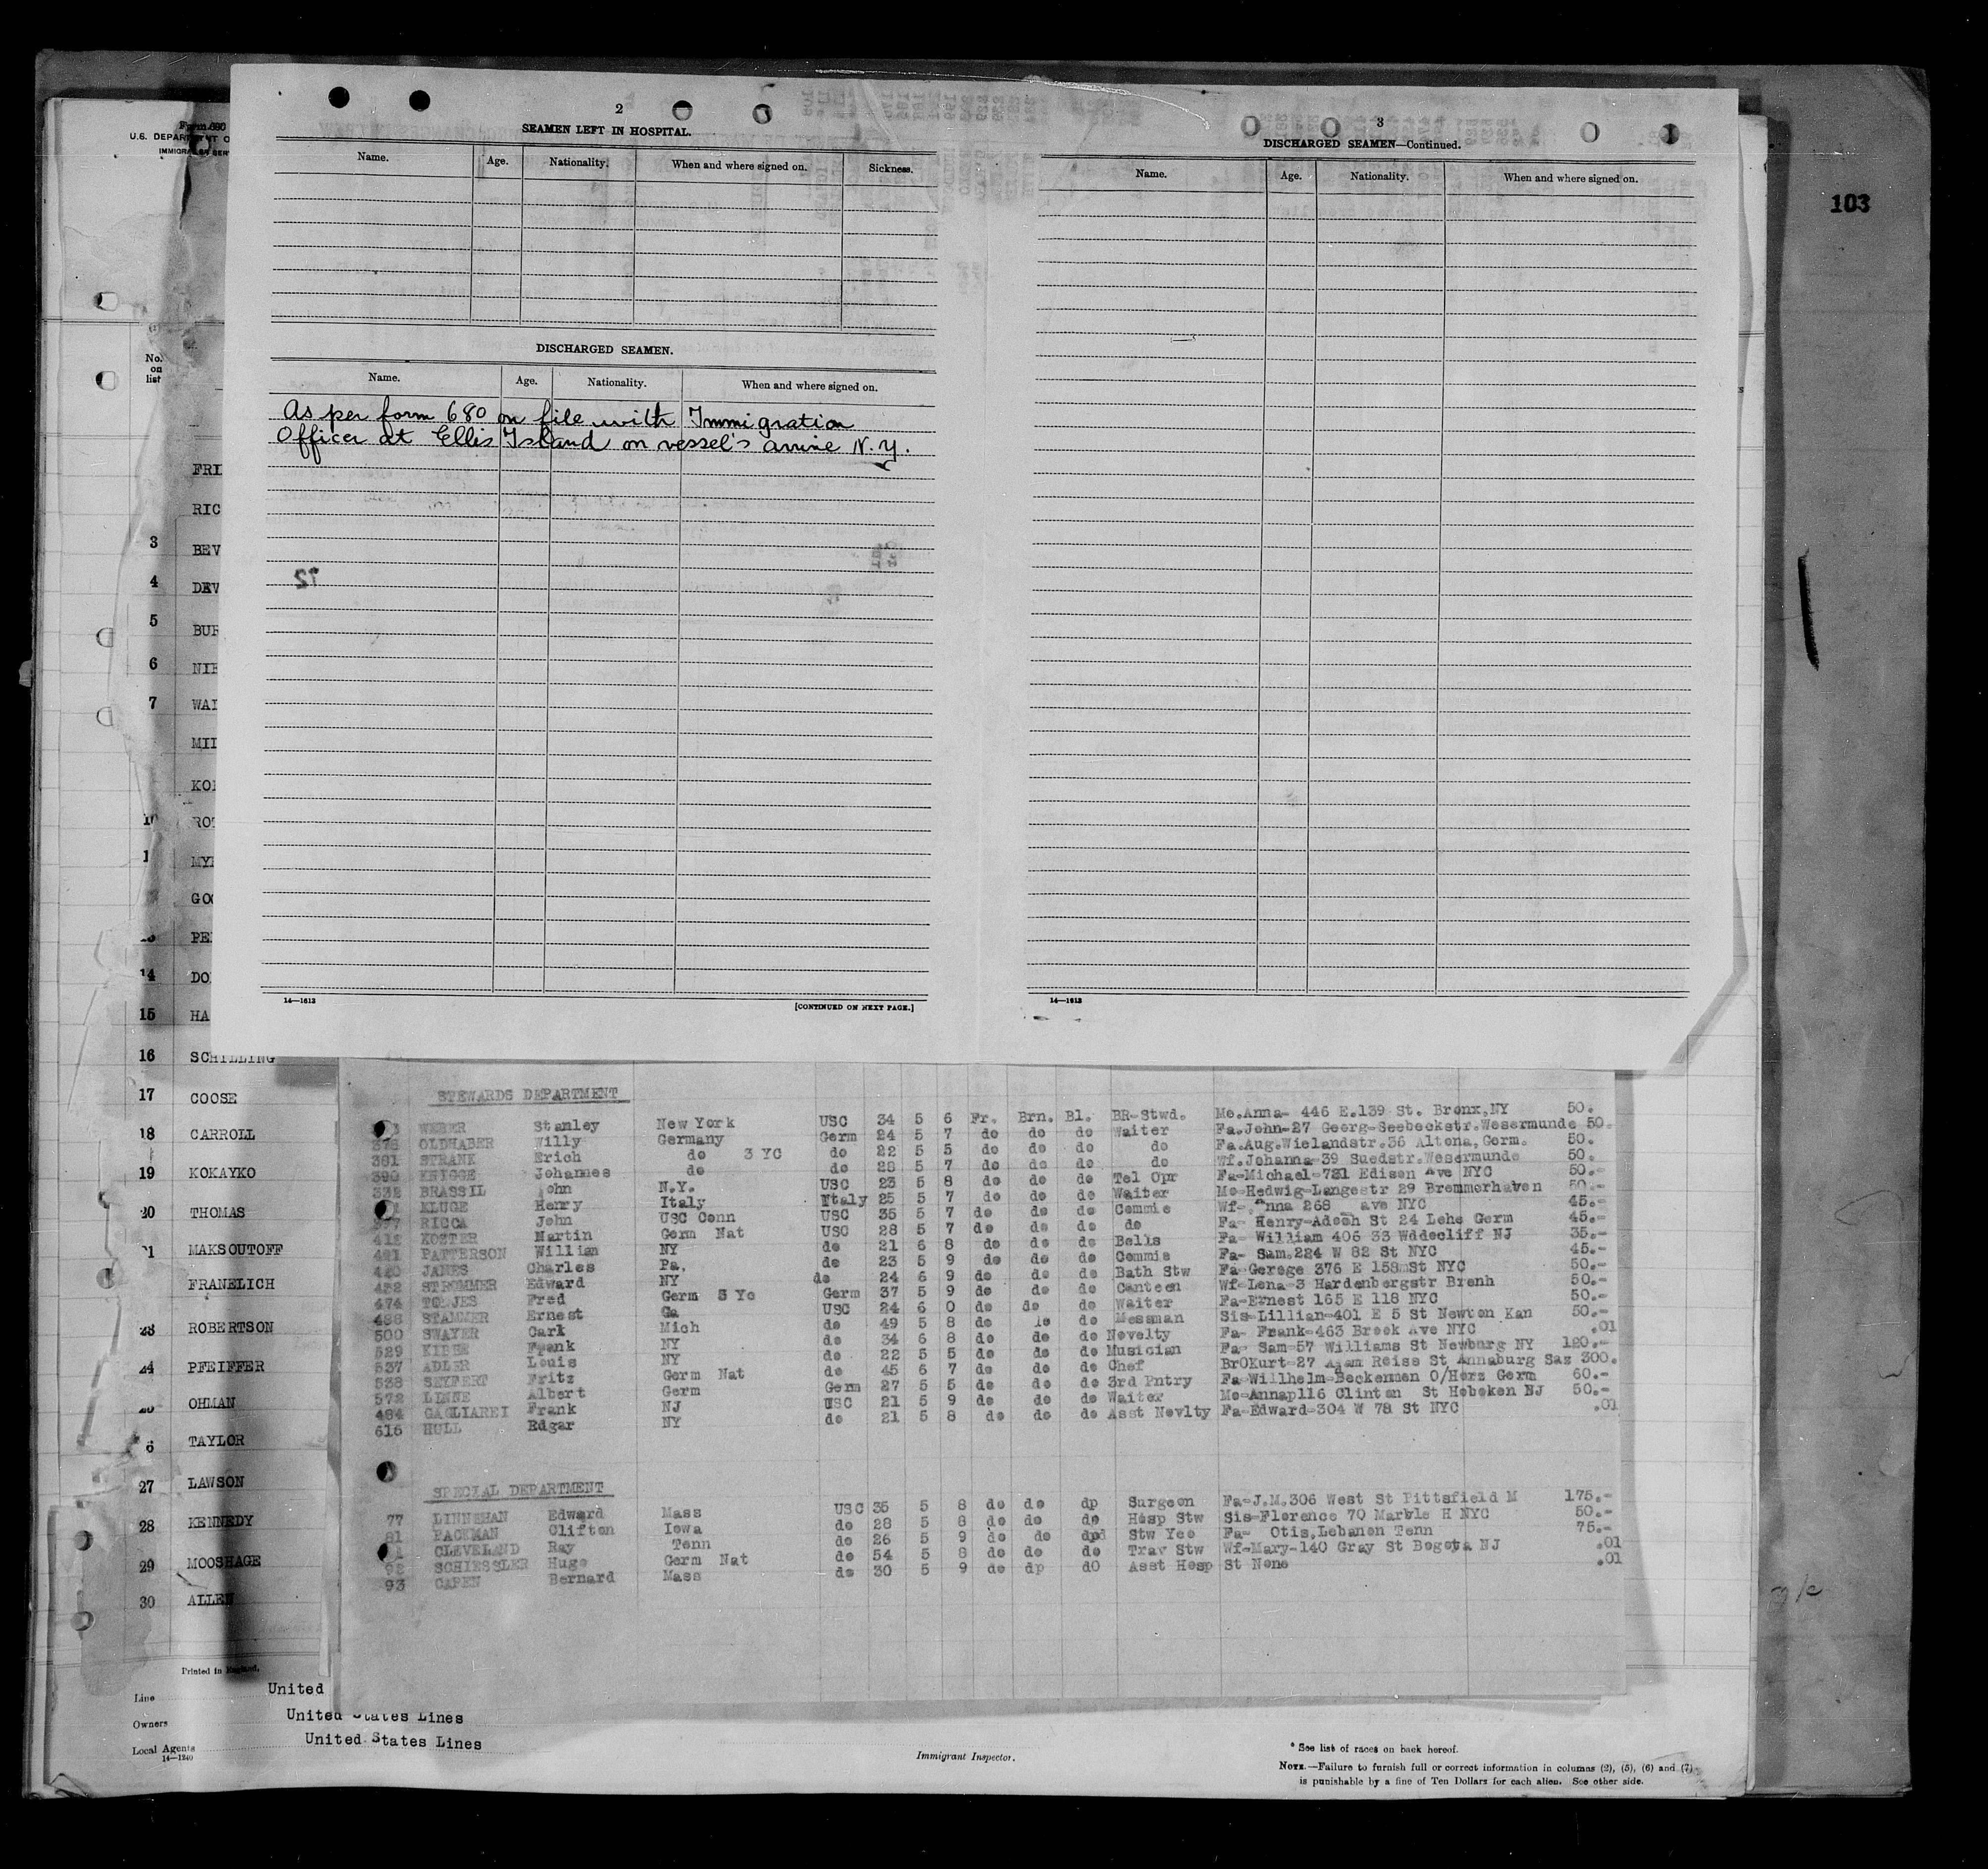 103
Form 680
U.S. DEPARTMENT O
IMMIGRA SER
No.
on
list
FRI
RIC
3 BEV
4 DEV
5 BUR
6 NIE
7 WAI
MII
KOI
ROT
MYE
GOO
PE
14 DO
15 HA
16 SCHILLING
17 COOSE
18 CARROLL
19 KOKAYKO
20 THOMAS
MAKSOUTOFF
FRANELICH
ROBERTSON
24 PFEIFFER
OHMAN
6 TAYLOR
27 LAWSON
28 KENNEDY
29 MOOSHAGE
30 ALLEN
Printed in England.
Line United
Owners United States Lines
Local Agents United States Lines
14—1240
2
SEAMEN LEFT IN HOSPITAL.
Name. Age. Nationality. When and where signed on. Sickness.
DISCHARGED SEAMEN.
Name. Age. Nationality. When and where signed on.
As per form 680 on file with Immigration
Officer at Ellis Island on vessel's arrive N.Y.
14—1613 [CONTINUED ON NEXT PAGE.]
3
DISCHARGED SEAMEN—Continued.
Name. Age. Nationality. When and where signed on.
14—1613
STEWARDS DEPARTMENT
WEBER Stanley New York USC 34 5 6 Fr. Brn. Bl. BR-Stwd. Mo.Anna- 446 E.139 St. Bronx,NY 50.
OLDHABER Willy Germany Germ 24 5 7 do do do Waiter Fa.John-27 Georg-Seebeckstr.Wesermunde 50.
381 STRANK Erich do 3 YC do 22 5 5 do do do do Fa.Aug.Wielandstr.36 Altona,Germ. 50.
390 KNIGGE Johannes do do 28 5 7 do do do do Wf.Johanna-39 Suedstr.Wesermunde 50.
332 BRASSIL John N.Y. USC 23 5 8 do do do Tel Opr Fa-Michael-721 Edison Ave NYC 50.-
KLUGE Henry Italy Italy 25 5 7 do do do Waiter Mo-Hedwig-Langestr 29 Bremmerhaven 50.-
RICCA John USC Conn USC 35 5 7 do do do Commie Wf- Anna 268 ave NYC 45.-
412 KOSTER Martin Germ Nat USC 28 5 7 do do do do Fa- Henry-Adosh St 24 Lehe Germ 45.-
421 PATTERSON William NY do 21 6 8 do do do Bells Fa- William 406 33 Wddecliff NJ 35.-
420 JANES Charles Pa, do 23 5 9 do do do Commie Fa- Sam.224 W 82 St NYC 45.-
432 STROMMER Edward NY do 24 6 9 do do do Bath Stw Fa-Gerege 376 E 158mSt NYC 50.-
474 TOEJES Fred Germ 3 Yc Germ 37 5 9 do do do Canteen Wf-Lena-3 Hardenbergstr Bremh 50.-
488 STAMMER Ernest Ga USC 24 6 0 do do do Waiter Fa-Ernest 165 E 118 NYC 50.-
500 SWAYER Carl Mich do 49 5 8 do do do Messman Sis-Lillian-401 E 5 St Newton Kan 50.-
529 Frank NY do 34 6 8 do do do Novelty Fa- Frank-463 Brook Ave NYC .01
537 ADLER Louis NY do 22 5 5 do do do Musician Fa- Sam-57 Williams St Newburg NY 120.-
538 SEYFERT Fritz Germ Nat do 45 6 7 do do do Chef BrOKurt-27 Adam Reise St Annaburg Sas 300.
572 LINNE Albert Germ Germ 27 5 5 do do do 3rd Pntry Fa-Willhelm-Beckenmen O/Harz Germ 60.-
484 GAGLIAREI Frank NJ USC 21 5 9 do do do Waiter Mo-Annap116 Clinton St Hoboken NJ 50.-
616 HULL Edgar NY do 21 5 8 do do do Asst Novlty Fa-Edward-304 W 78 St NYC .01
SPECIAL DEPARTMENT
77 LINNEHAN Edward Mass USC 35 5 8 do do dp Surgeon Fa-J.M.306 West St Pittsfield M 175.-
81 PACKMAN Clifton Iowa do 28 5 8 do do do Hosp Stw Sis-Florence 70 Marble H NYC 50.-
CLEVELAND Ray Tenn do 26 5 9 do do Stw Yeo Fa- Otis,Lebanon Tenn 75.-
92 SCHIESSLER Hugo Germ Nat do 54 5 8 do do do Trav Stw Wf-Mary-140 Gray St Bogota NJ .01
93 CAPEN Bernard Mass do 30 5 9 do dp dO Asst Hosp St None .01
Immigrant Inspector.
* See list of races on back hereof.
NOTE.—Failure to furnish full or correct information in columns (2), (5), (6) and (7)
is punishable by a fine of Ten Dollars for each alien. See other side.